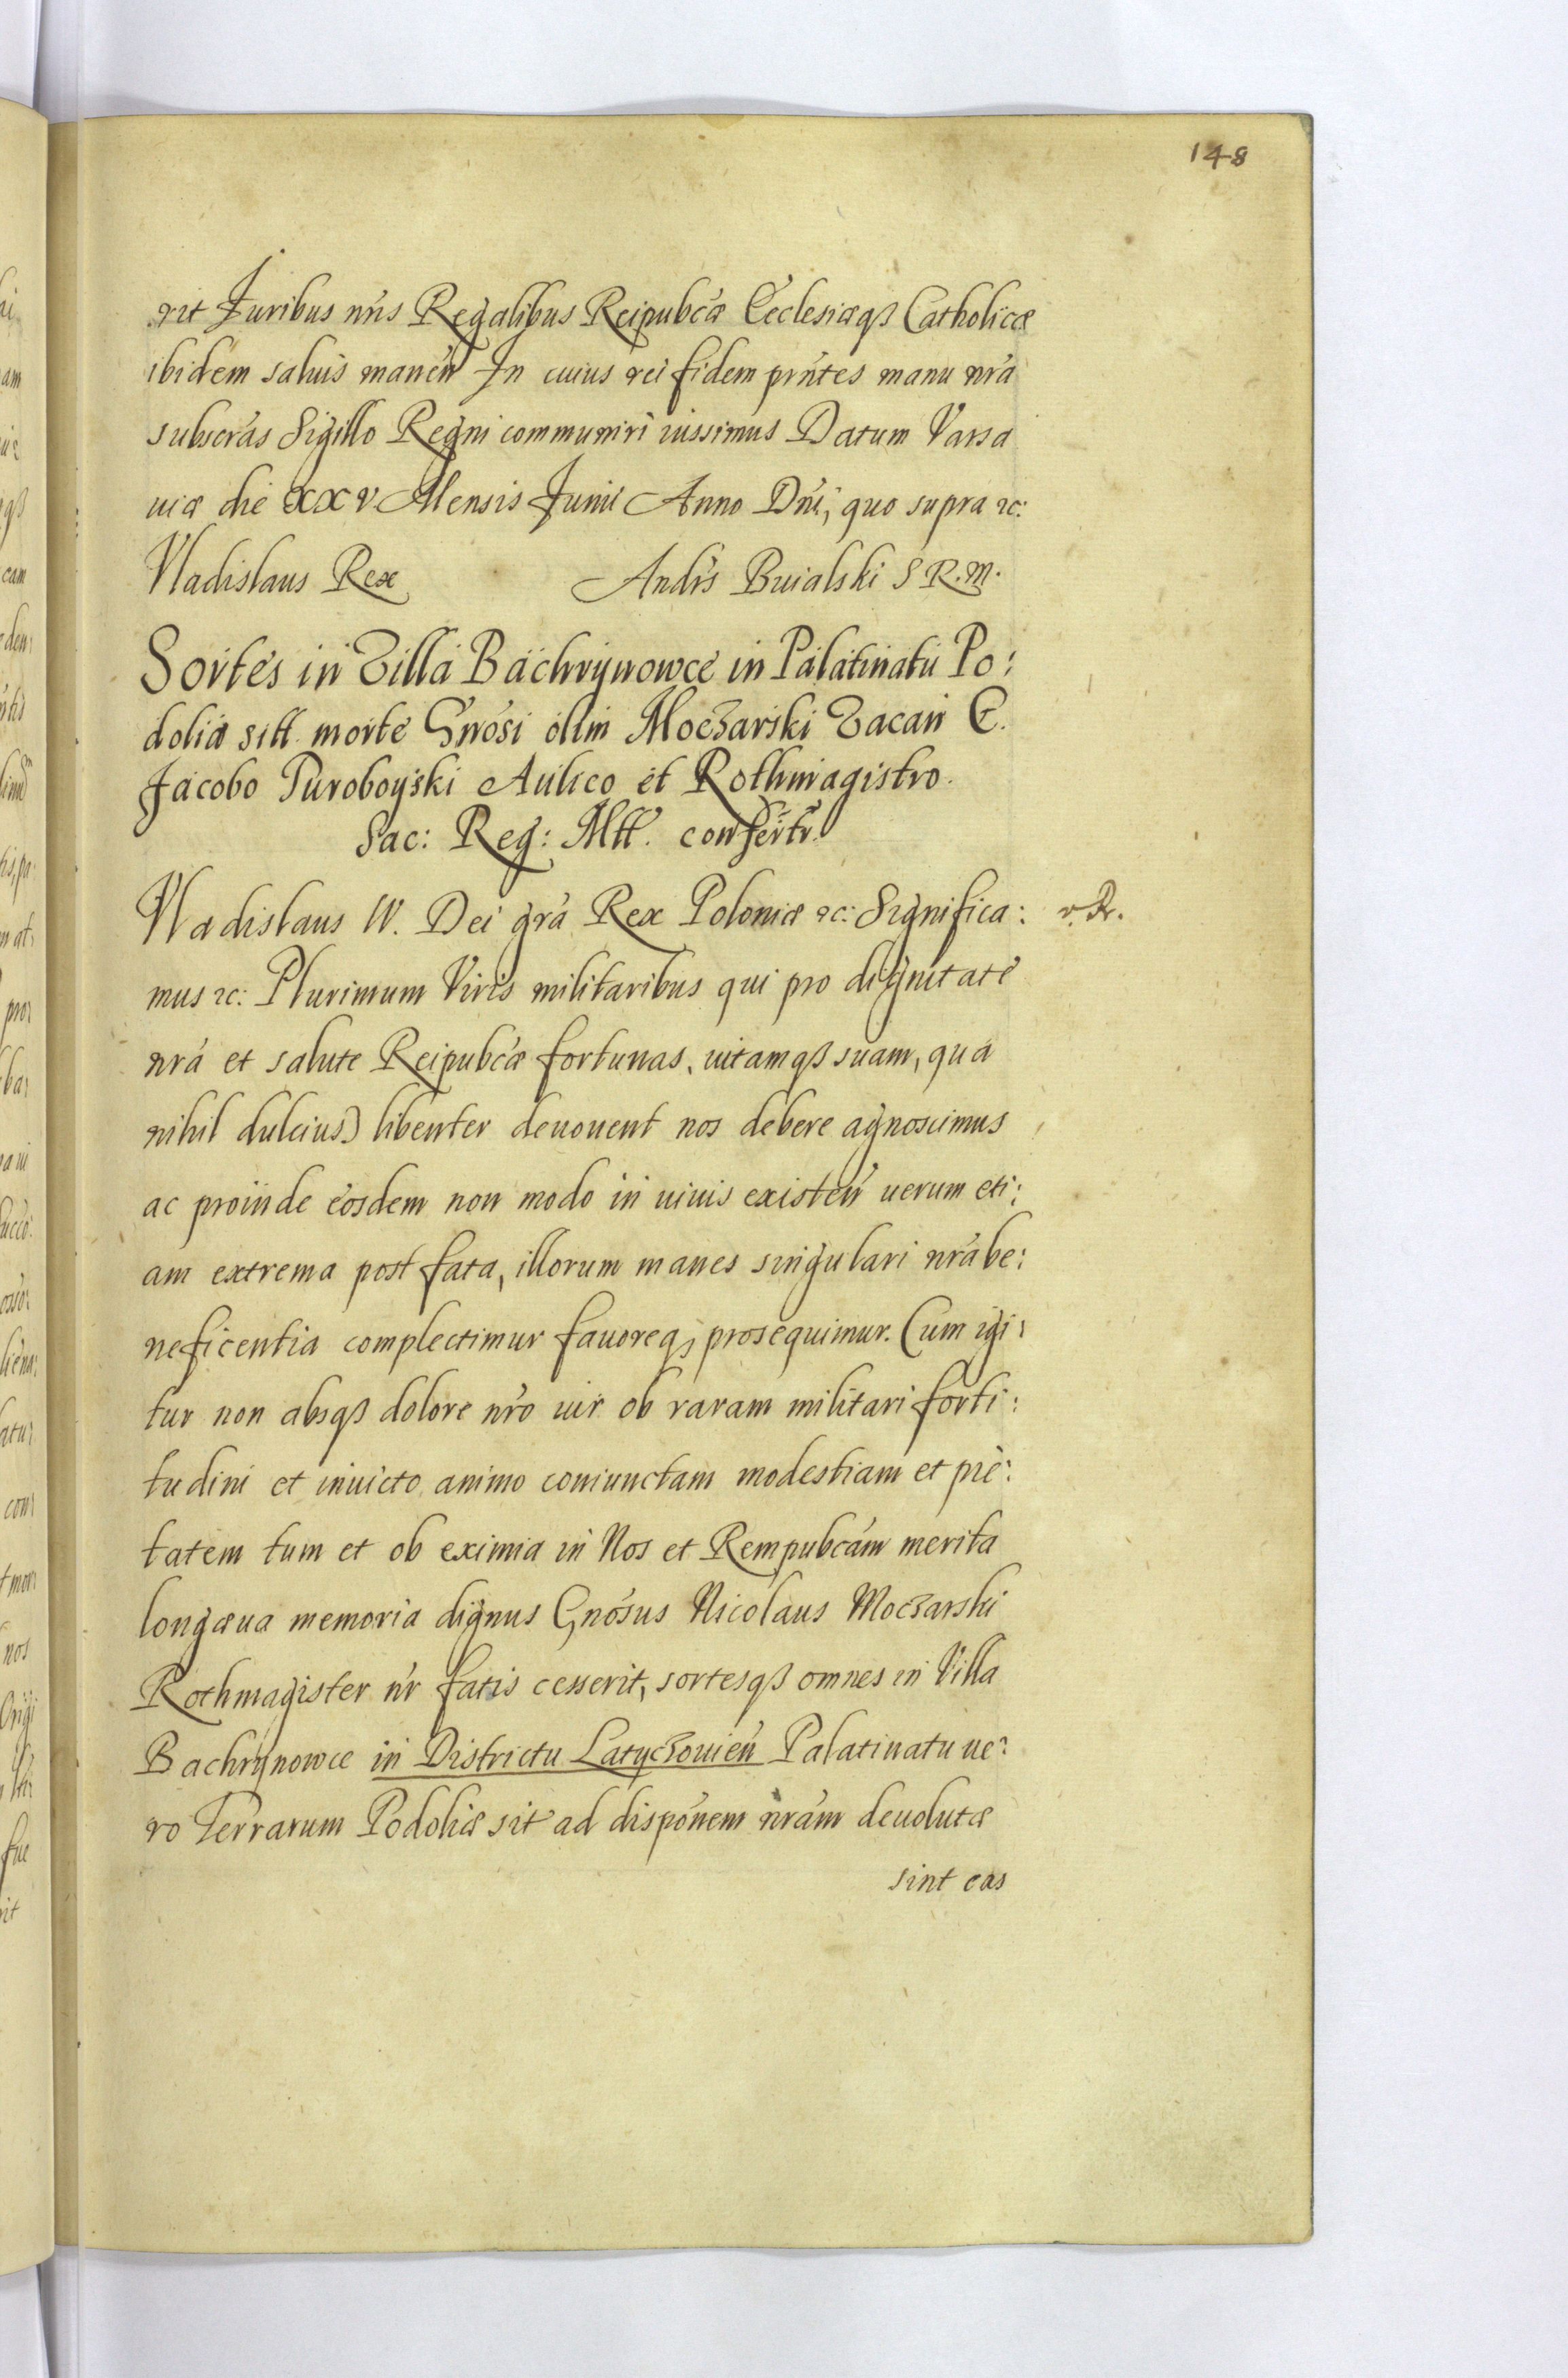 148
rit Juribus nris Regalibus Reipubcæ Ecclesiæqꝫ Catholicæ
ibidem saluis manen̄ In cuius rei fidem prn̄tes manu nrá
subscrás Sigillo Regni communiri iussimus Datum Varsa
uiæ die XXV Mensis Junii Anno Dn̄i, quo supra ꝛc:
Vladislaus Rex Andr̄s Buialski S R. M.
Sortes in Villa Bachrÿnowce in Palatinatu Po:
doliæ sitt morte Gnōsi olim Moczarski Vacan̄ G.
Jacobo Puroboÿski Aulico et Rothmagistro.
Sac: Reg: Mtt. confertr.
Vladislaus IV. Dei grá Rex Poloniæ ꝛc: Significa:
mus ꝛc: Plurimum Viris militaribus qui pro dignitate
nrá et salute Reipubcæ fortunas, uitamqꝫ suam, qua
nihil dulcius) libenter deuouent nos debere agnoscimus
ac proinde eosdem non modo in uiuis existen̄ uerum eti:
am extrema post fata, illorum manes singulari nrá be:
neficentia complectimur fauoreqꝫ prosequimur. Cum igi:
tur non absqꝫ dolore nró uir ob raram militari forti:
tudini et inuicto animo coniunctam modestiam et pie:
tatem tum et ob eximia in Nos et Rempubcám merita
longæua memoria dignus Gnósus Nicolaus Moczarski
Rothmagister nr̄ fatis cesserit, sortesqꝫ omnes in Villa
Bachrÿnowce in Districtu Latyczouien̄ Palatinatu ue:
ro Terrarum Podoliæ sit ad dispónem nrám deuolutæ
sint eas